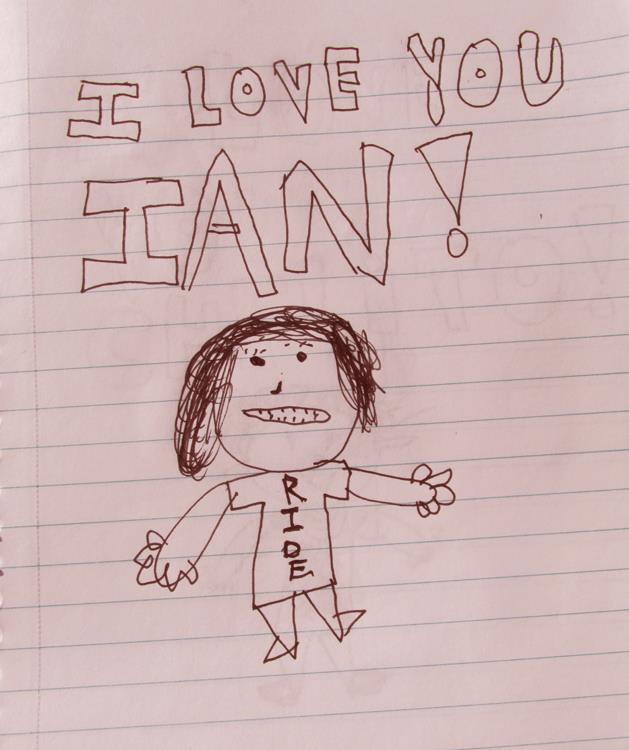 I LOVE YOU
IAN!
RIDE